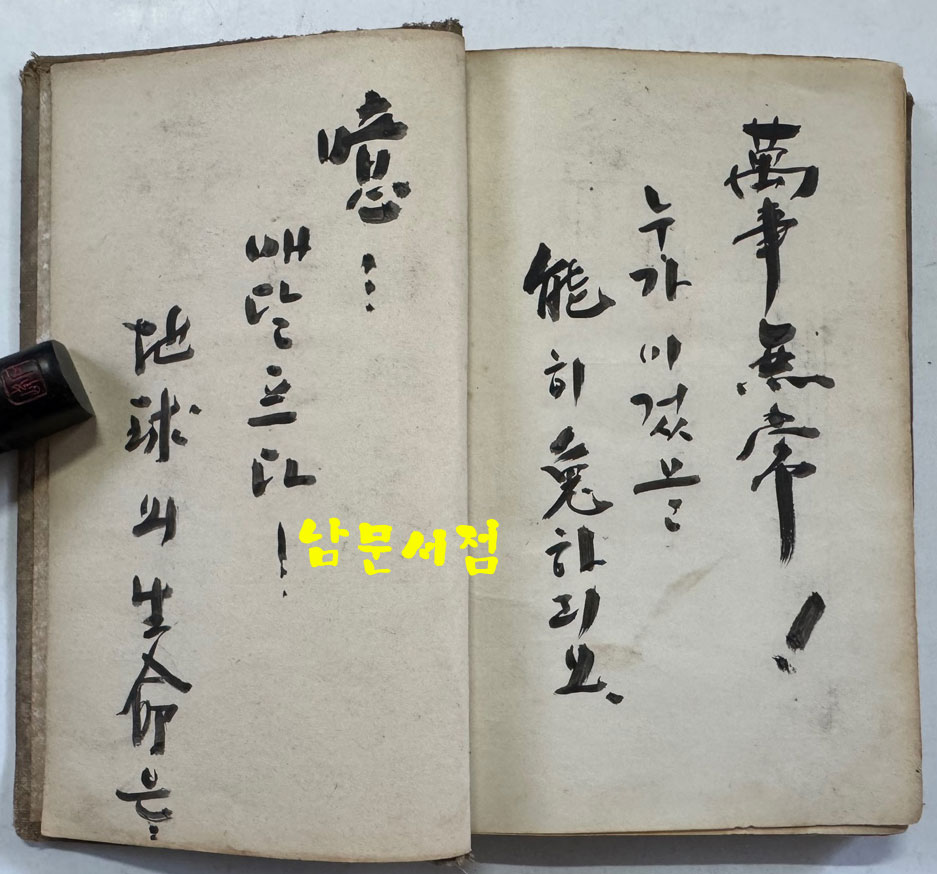 萬事無常!
누가 이것을
能히 免하리오.
噫...
애닯흐다!
地球의 生命은
남문서점